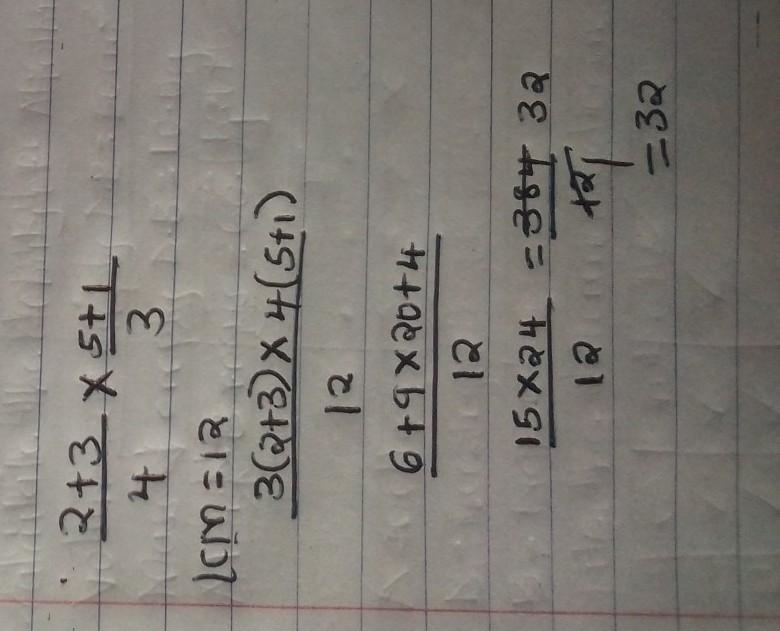 2+3 × 5+1
4 3
LCM = 12
3(2+3) × 4(5+1)
12
6+9 × 20+4
12
15 × 24 = 384 32
12 12 1
= 32